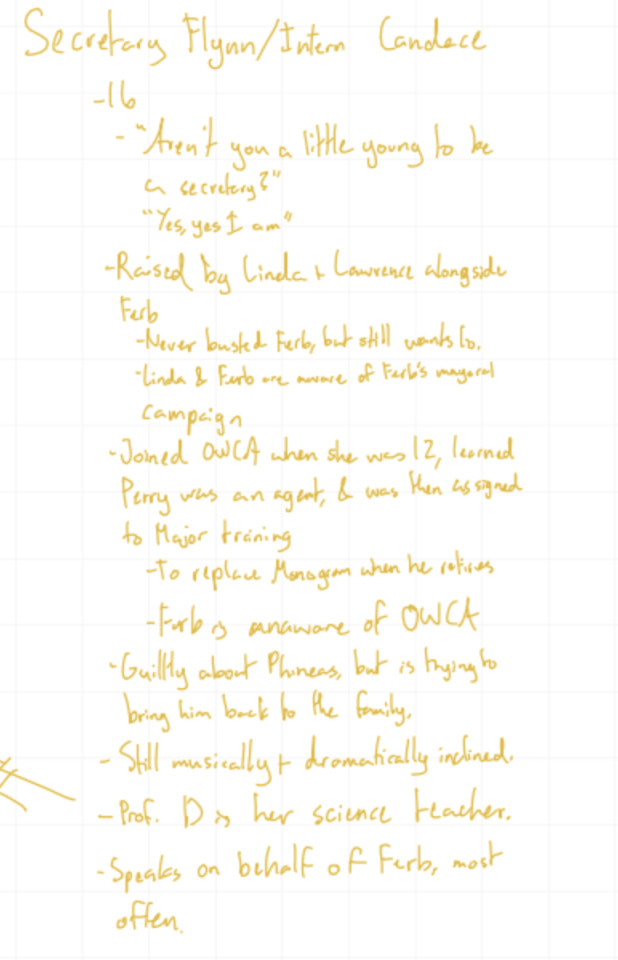 Secretary Flynn/Intern Candace
-16
- "Aren't you a little young to be
a secretary?"
"Yes, yes I am"
-Raised by Linda + Lawrence alongside
Ferb
-Never busted Ferb, but still wants to.
-Linda & Ferb are aware of Ferb's mayoral
campaign
-Joined OWCA when she was 12, learned
Perry was an agent, & was then assigned
to Major training
-To replace Monogram when he retires
-Ferb is unaware of OWCA
-Guiltly about Phineas, but is trying to
bring him back to the family.
- Still musically + dramatically inclined.
- Prof. D is her science teacher.
-Speaks on behalf of Ferb, most
often.